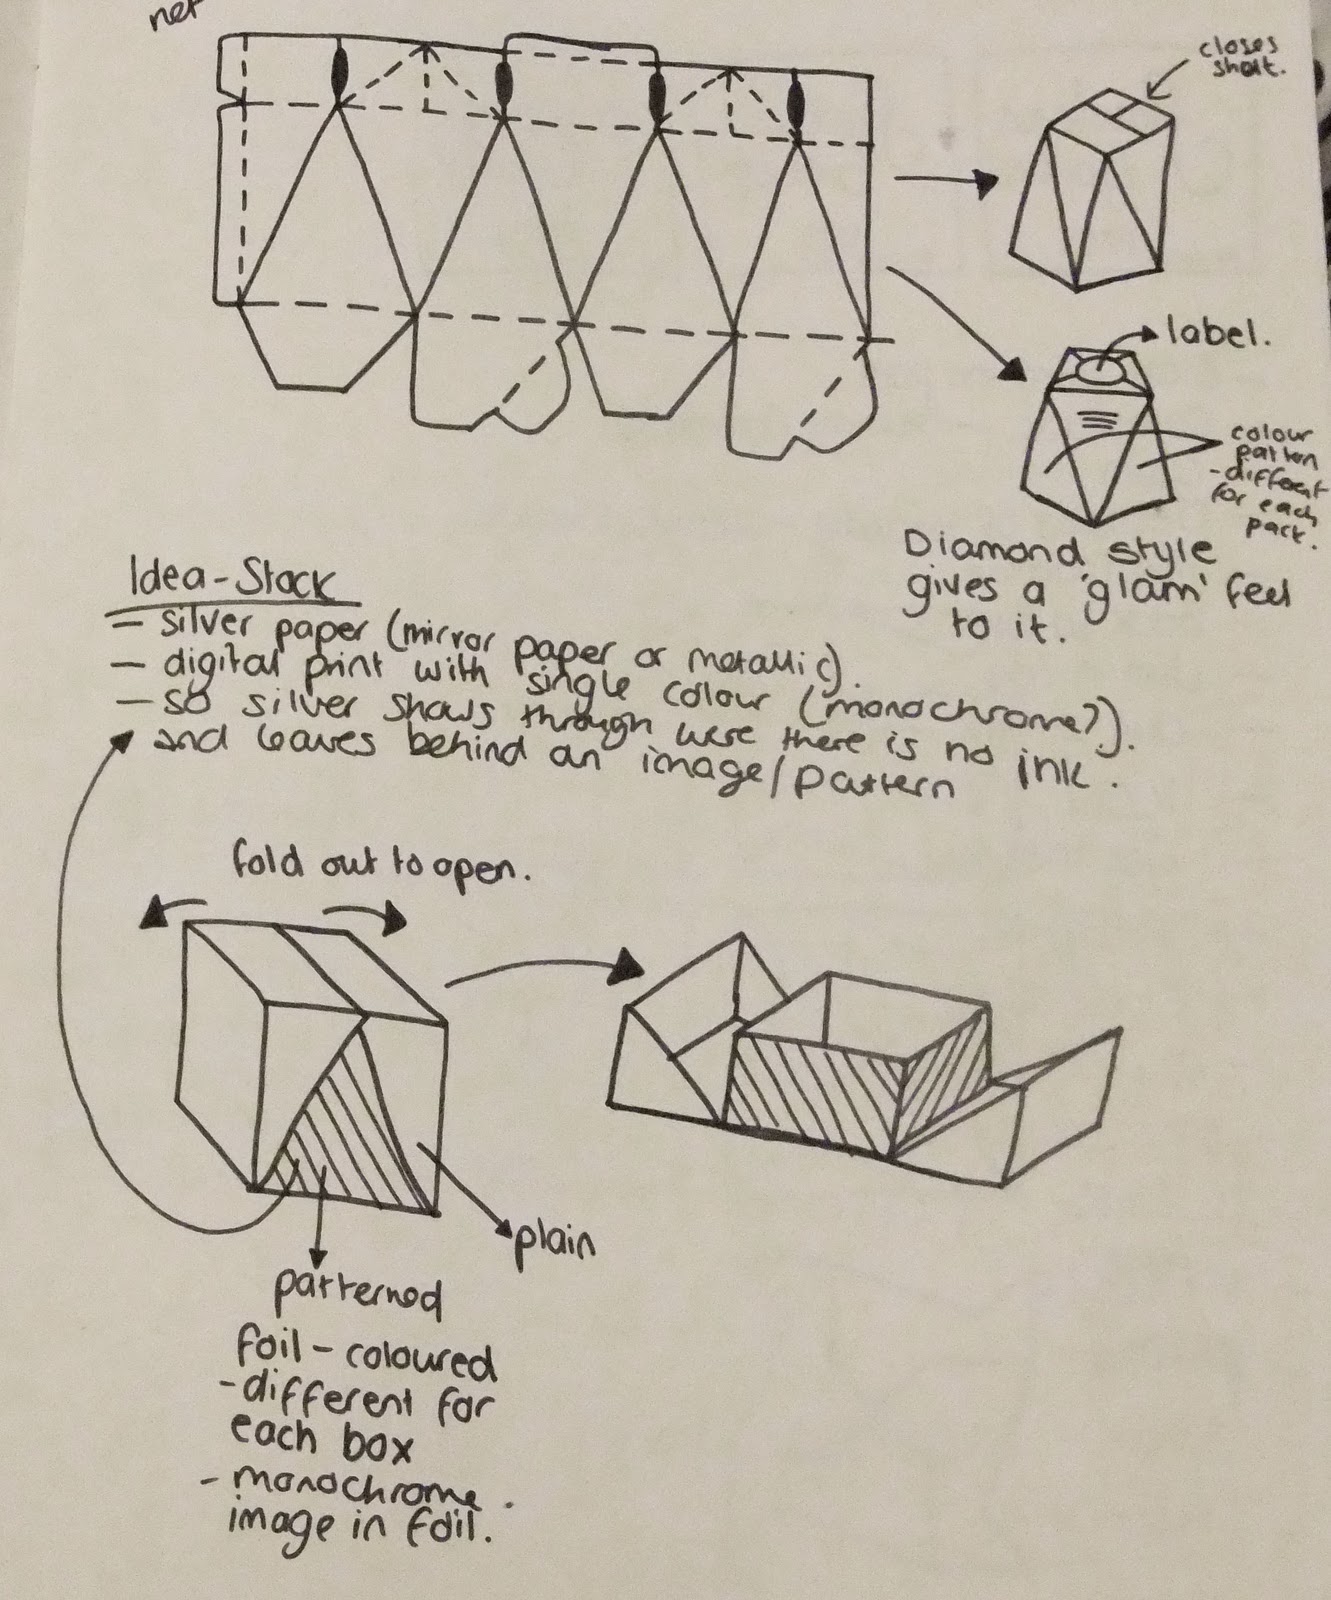 net
closes
shut.
label.
colour
pattern
-different
for each
pack.
Diamond style
gives a 'glam' feel
to it.
Idea-Stock
- silver paper (mirror paper or metallic).
- digital print with single colour (monochrome?).
- so silver shows through were there is no ink.
and leaves behind an image/pattern
fold out to open.
plain
patterned
foil - coloured
-different for
each box
- monochrome
image in foil.